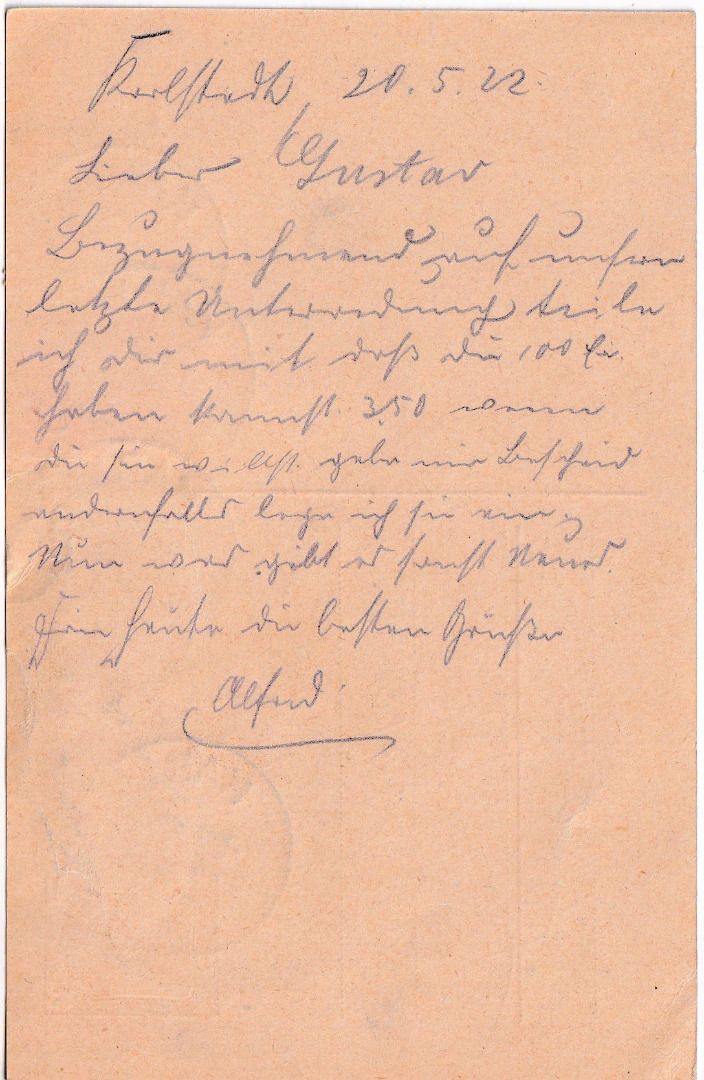 Karlstadt, 20.5.22.
Lieber Gustav
Bezugnehmend auf unsere
letzte Unterredung teile
ich dir mit daß du 100
haben kannst. 3.50 wenn
du sie willst. gebe mir Bescheid
andernfalls lege ich sie ein
Nun was gibt es sonst Neues.
Für heute die besten Grüße
Alfred.